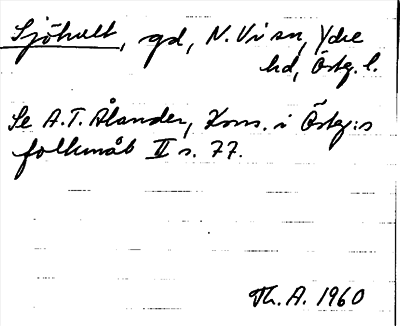 Sjöhult, gd, N. Vi sn, Ydre
hd, Östg. l.
Se A.T. Ålander, Kons. i Östg:s
folkmål II s. 77.
Th. A. 1960